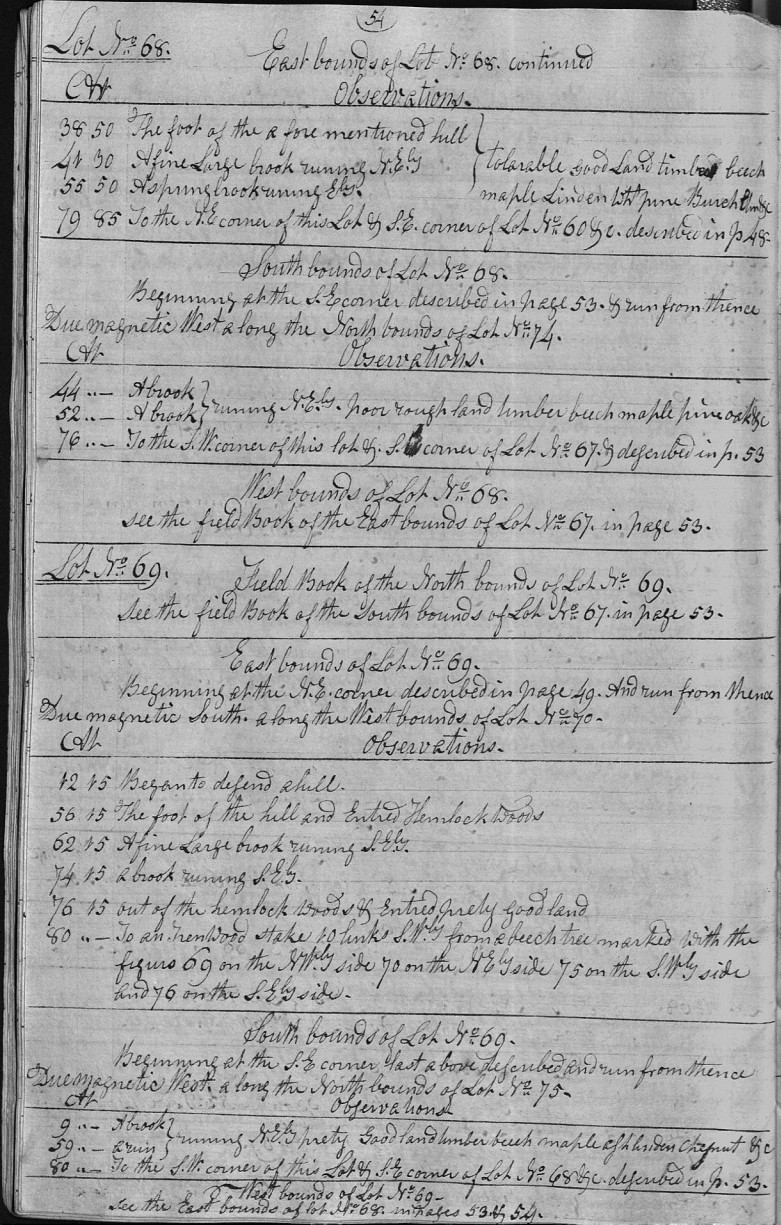 54
Lot No. 68.
East bounds of Lot No. 68. continued
Ch lt
Observations.
38 50 The foot of the a fore mentioned hill
41 30 A fine Large brook runing N.Ely
tolarable good Land timber beech
55 50 A spring brook runing Ely.
maple Linden Wht pine Burch Elm &c
79 85 To the N.E corner of this Lot & S.E. corner of Lot No. 60 &c. described in p 48.
South bounds of Lot No. 68.
Beginning at the S.E corner described in page 53. & run from thence
Due magnetic West along the North bounds of Lot No. 74.
Observations.
44 " — A brook
52 " — A brook
runing N.Ely. poor rough land timber beech maple pine oak &c
76 " — To the S.W. corner of this lot &. S.E corner of Lot No. 67. & described in p. 53
West bounds of Lot No. 68.
see the field Book of the East bounds of Lot No. 67. in page 53.
Lot No. 69.
Field Book of the North bounds of Lot No. 69.
See the field Book of the South bounds of Lot No. 67. in page 53.
East bounds of Lot No. 69.
Beginning at the N.E. corner described in page 49. And run from thence
Due magnetic South. along the West bounds of Lot No. 70.
Observations.
12 15 Began to desend a hill.
56 15 The foot of the hill and Entred Hemlock Woods
62 15 A fine Large brook runing S.Ely.
74 15 a brook runing S.Ely.
76 15 out of the hemlock Woods & Entred prety good land
80 " — To an Irenwood stake 10 links S.Wly from a beech tree marked with the
figurs 69 on the NWly side 70 on the NEly side 75 on the S.Wly side
and 76 on the S.Ely side.
South bounds of Lot No. 69.
Beginning at the S.E corner last above described and run from thence
Due magnetic West. along the North bounds of Lot No. 75.
Observations
9 " — A brook
59 " — a run
runing N.Ely prety Good land timber beech maple ash linden chesnut &c
80 " — To the S.W. corner of this Lot & S.E corner of Lot No. 68 &c. described in p. 53.
West bounds of Lot No. 69.
see the East bounds of lot No. 68. in pages 53 & 54.